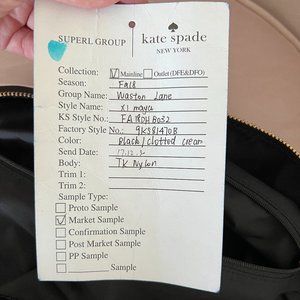 SUPERL GROUP
kate spade
NEW YORK
Collection: ☑ Mainline ☐ Outlet (DFE&DFO)
Season: FA18
Group Name: Waston Lane
Style Name: XI maya
KS Style No.: FA18DHB032
Factory Style No.: 9KS81470B
Color: Black/clotted cream
Send Date: 17.12.
Body: TK Nylon
Trim 1:
Trim 2:
Sample Type:
☐ Proto Sample
☑ Market Sample
☐ Confirmation Sample
☐ Post Market Sample
☐ PP Sample
☐ ________ Sample